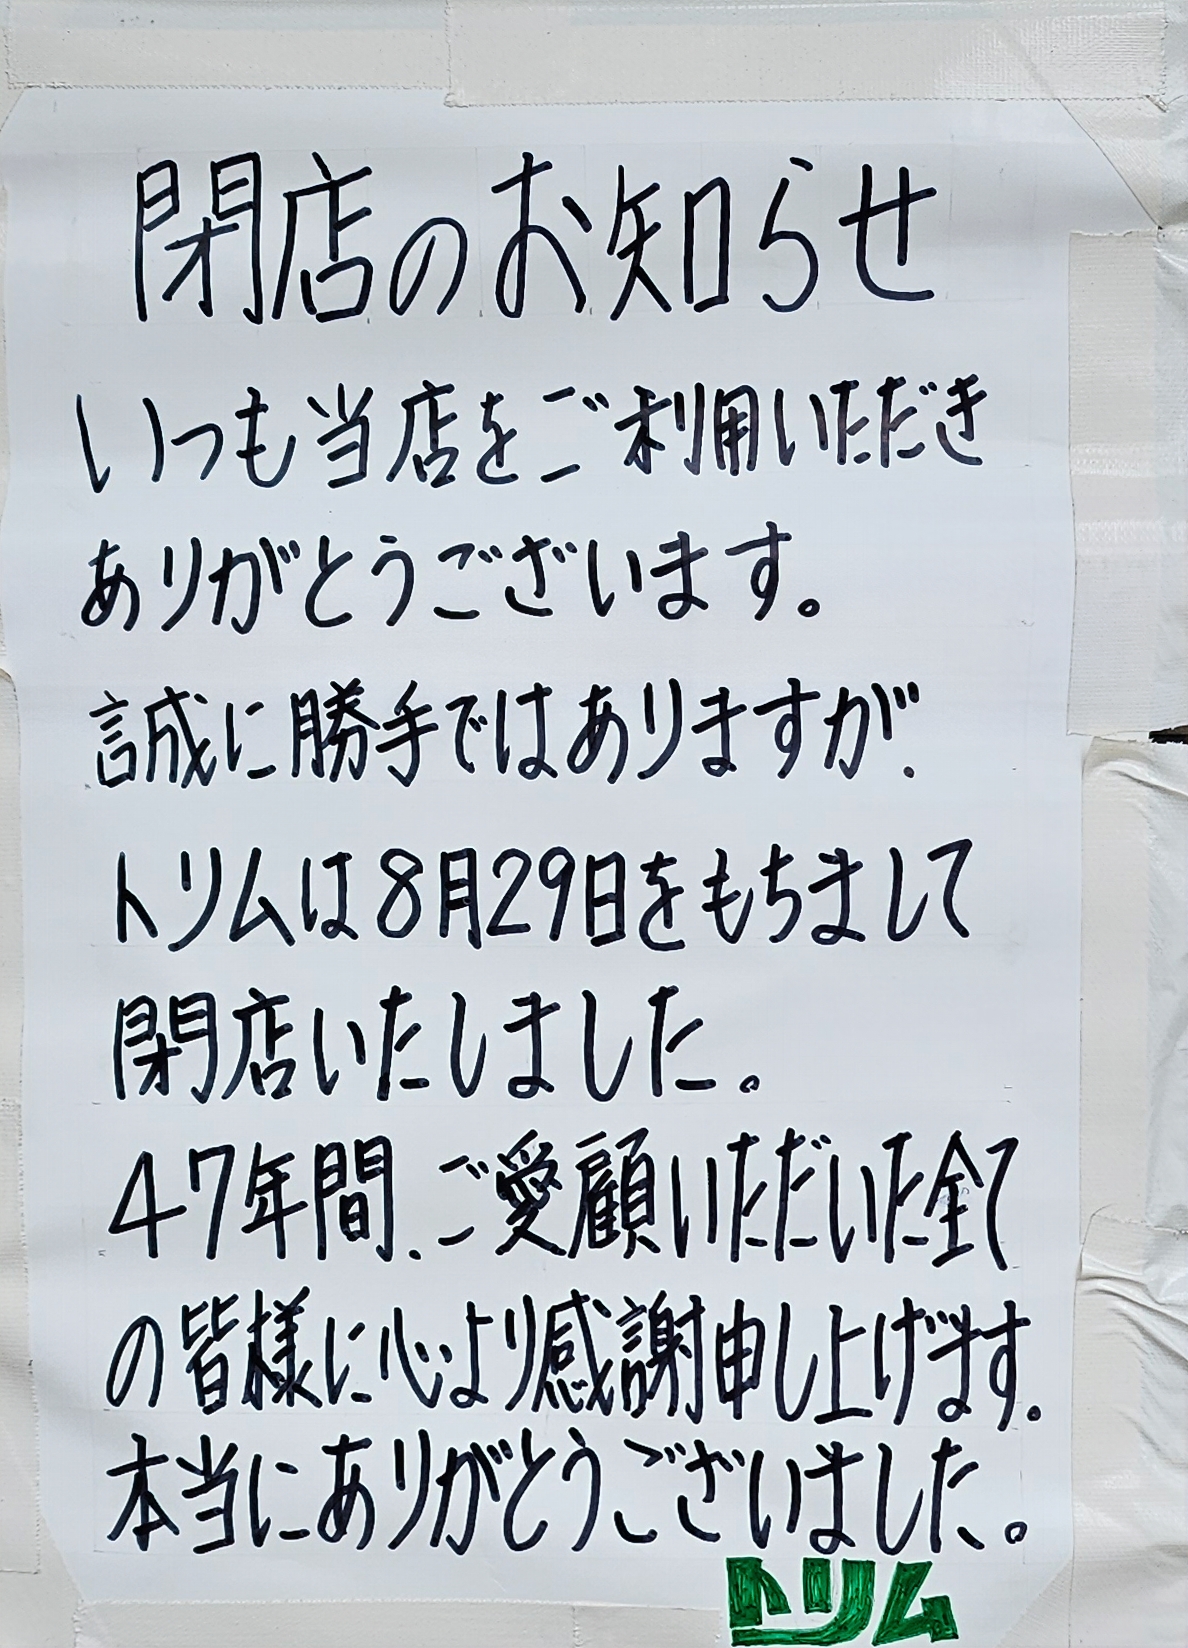 閉店のお知らせ
いつも当店をご利用いただき
ありがとうございます。
誠に勝手ではありますが、
トリムは8月29日をもちまして
閉店いたしました。
47年間、ご愛顧いただいた全て
の皆様に心より感謝申し上げます。
本当にありがとうございました。
トリム